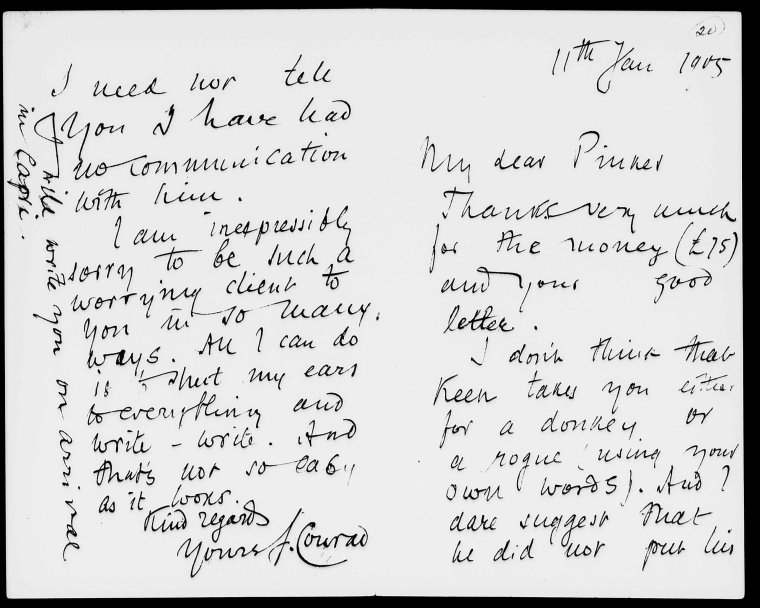 20
11th Jan 1905
My dear Pinker
Thanks very much
for the money (£75)
and your good
letter.
I don't think that
Keen takes you either
for a donkey or
a rogue (using your
own words). And I
dare suggest that
he did not put his
I need not tell
you I have had
no communication
with him.
I am inexpressibly
sorry to be such a
worrying client to
you in so many
ways. All I can do
is to shut my ears
to everything and
write - write. And
that's not so easy
as it looks.
Kind regards
Yours J. Conrad
I will write you on arrival
in Capri.